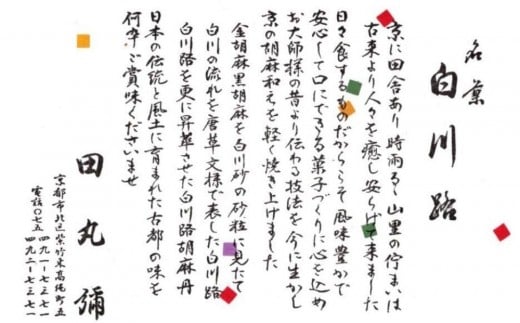 名菓
白川路
京に田舎あり 時雨るゝ山里の佇まいは
古来より人々を癒し安らげて来ました
日々食するものだからこそ 風味豊かで
安心して口にできる菓子づくりに心を込め
お大師様の昔より伝わる技法を今に生かし
京の胡麻和えを軽く焼き上げました
金胡麻黒胡麻を白川砂の砂粒に見たて
白川の流れを唐草文様で表した白川路
白川路を更に昇華させた白川路胡麻丹
日本の伝統と風土に育まれた古都の味を
何卒ご賞味くださいませ
田丸彌
京都市北区紫竹東高縄町五
電話〇七五 四九一-七三七一
四九二-七三七一